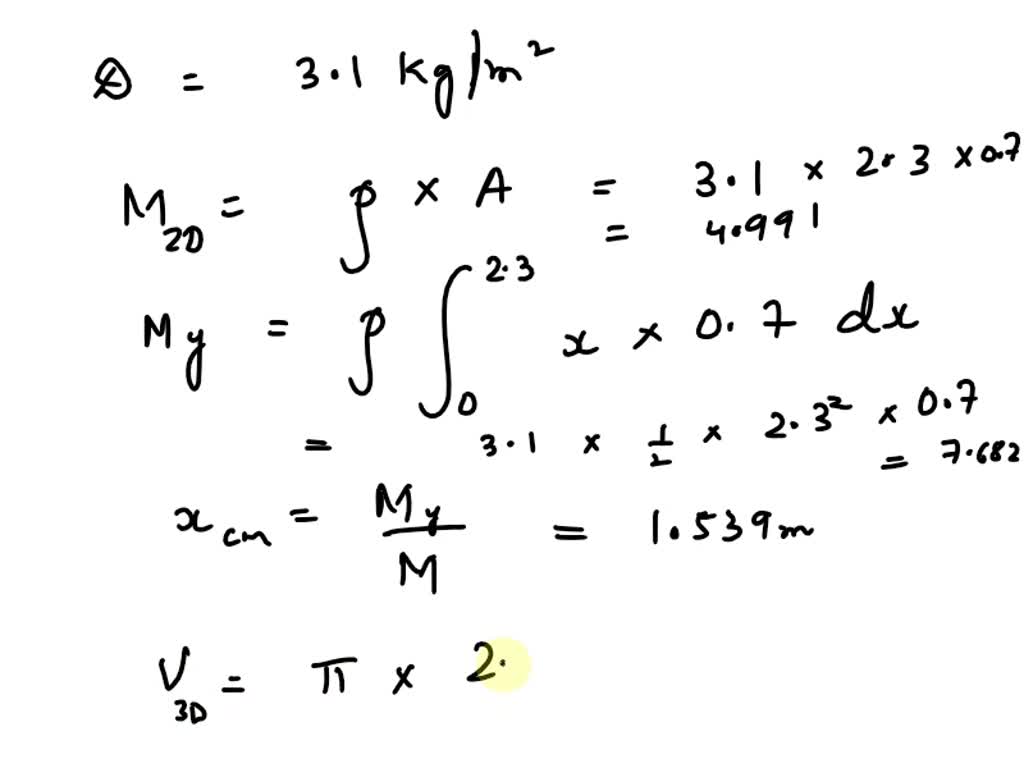 D = 3.1 kg/m²
M₂D = ρ × A = 3.1 × 2.3 × 0.7
= 4.991
My = ρ ∫₀^2.3 x × 0.7 dx
= 3.1 × 1/2 × 2.3² × 0.7
= 7.682
x cm = My/M = 1.539m
V₃D = π × 2.